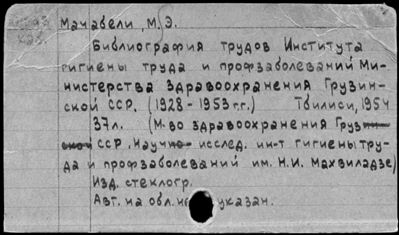 Мачабели, М.Э.
Библиография трудов Института
гигиены труда и профзаболеваний Ми-
нистерства здравоохранения Грузин-
ской ССР. (1928-1953 г.г.) Тбилиси, 1954
37л. (М-во здравоохранения Грузин-
ской ССР. Научно- исслед. ин-т гигиены тру-
да и профзаболеваний им. Н.И. Махвиладзе)
Изд. стеклогр.
Авт. на обл. не указан.